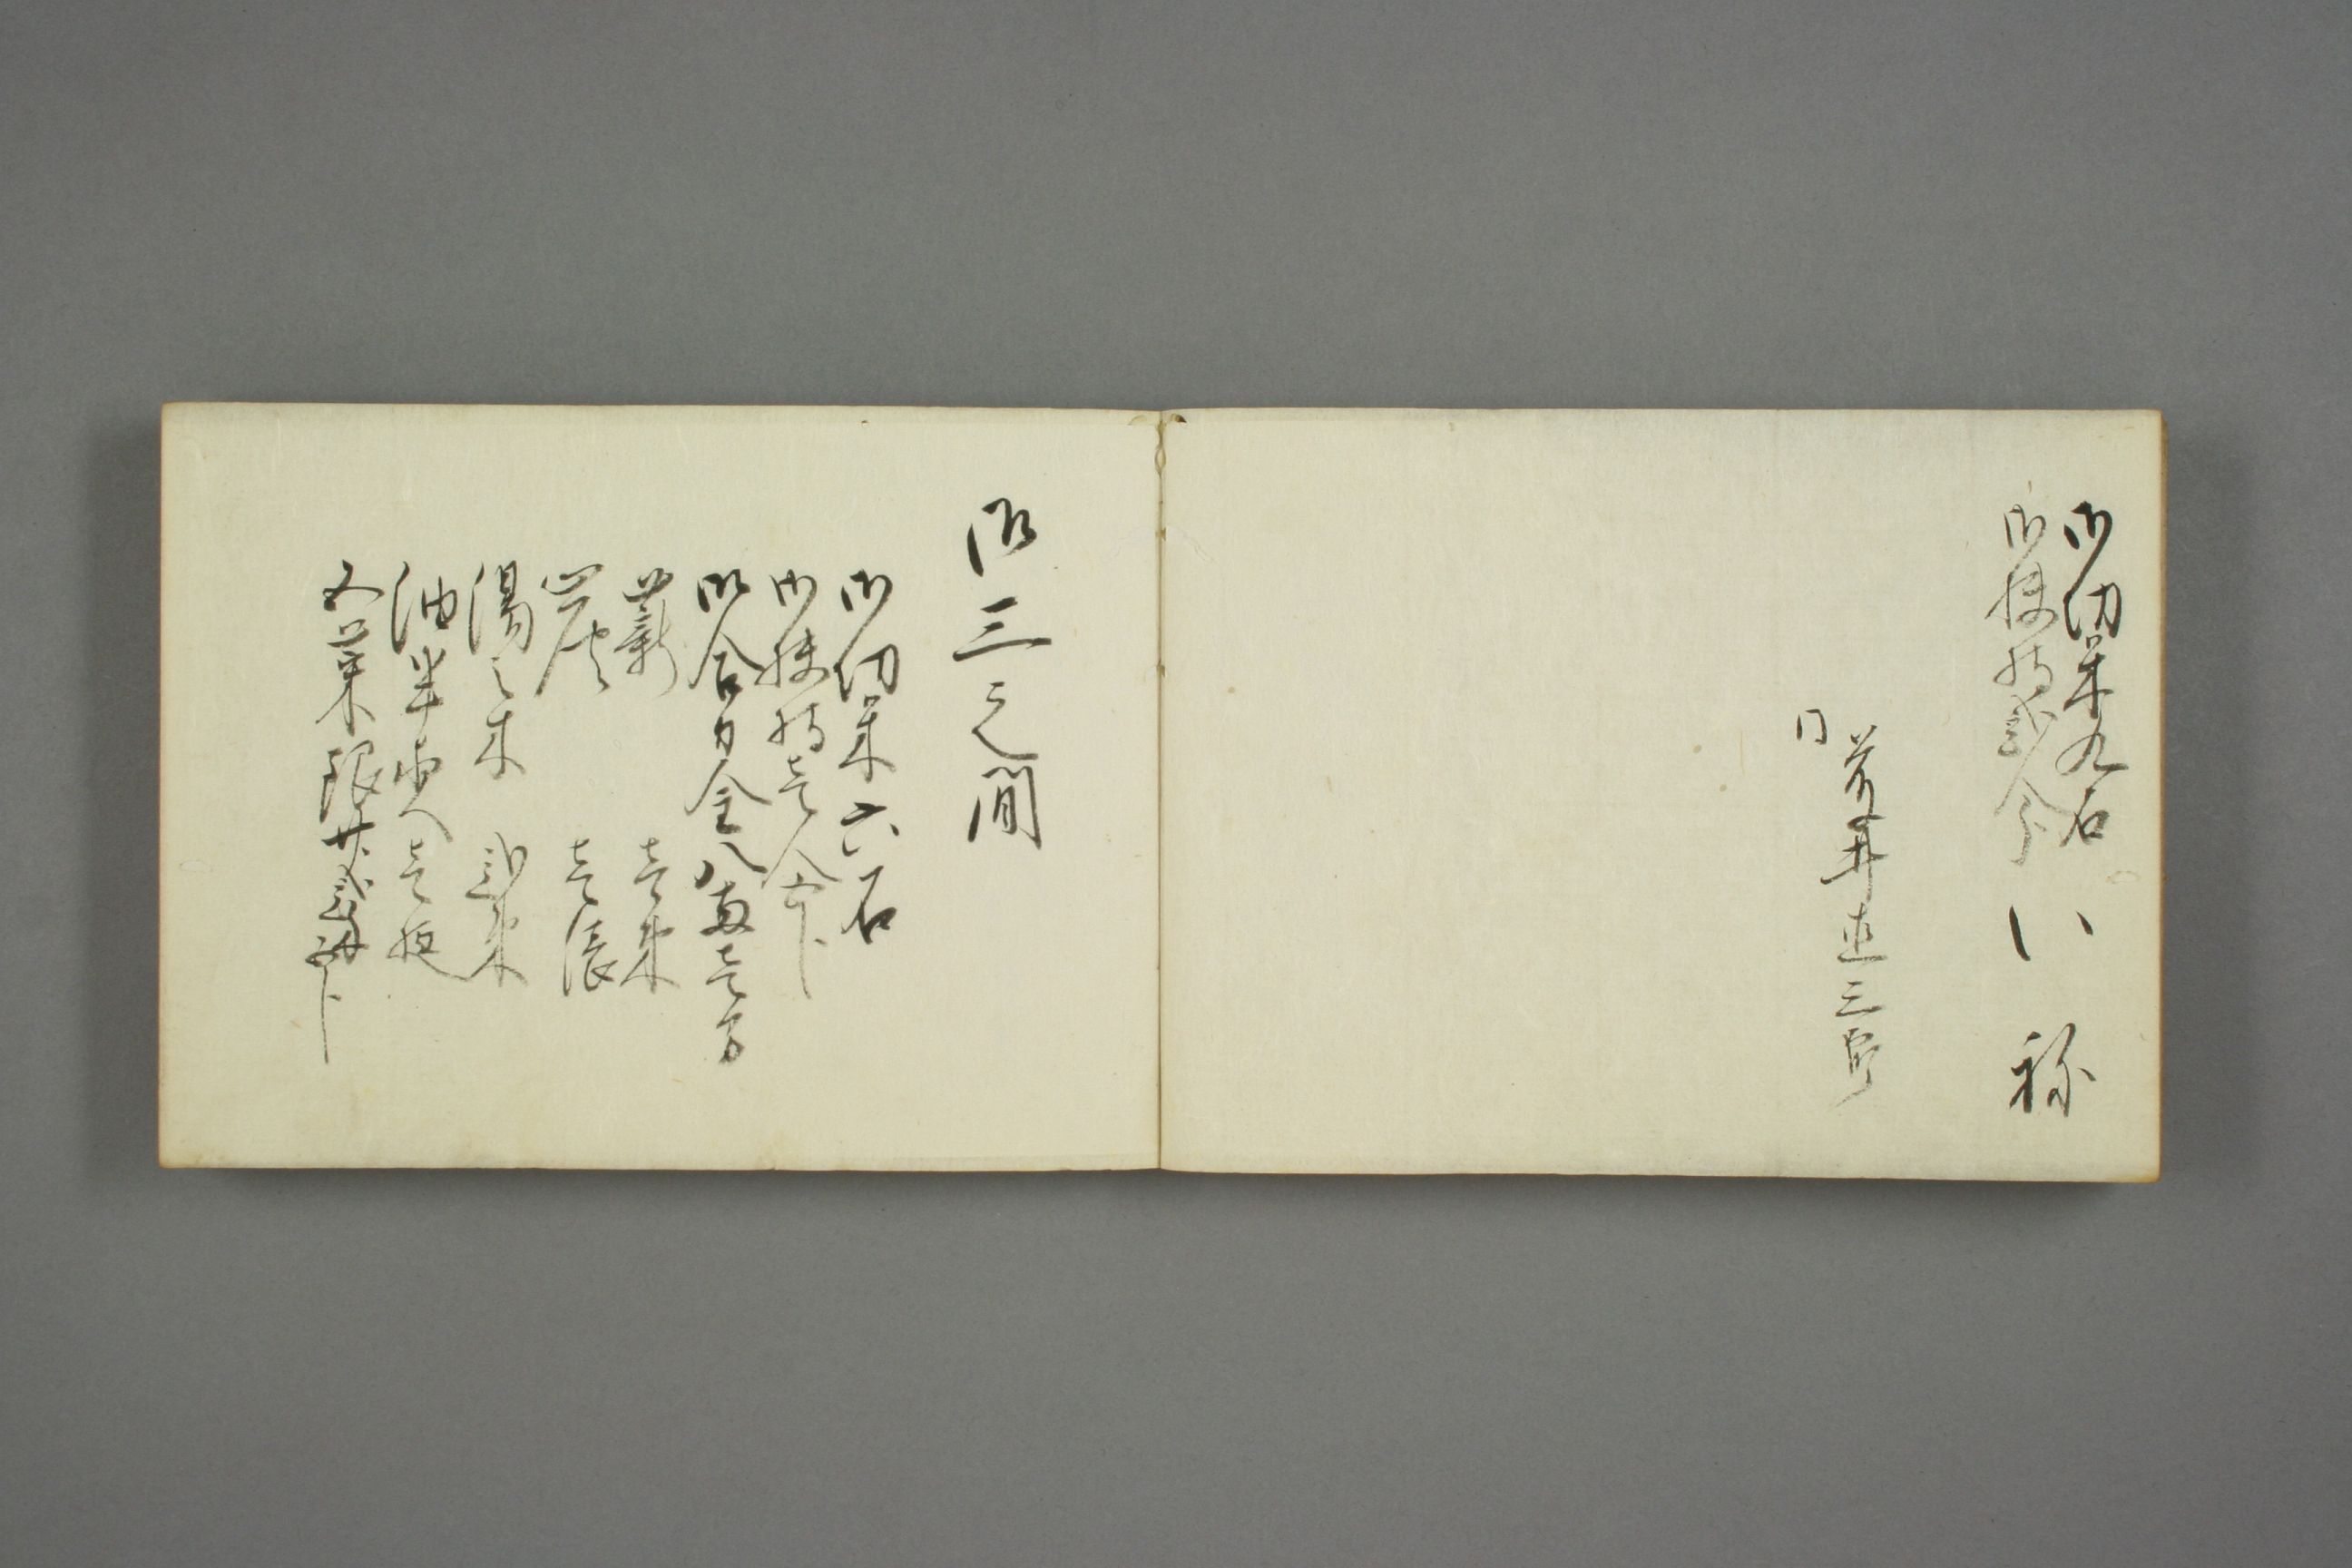 御切米九石
御扶持弐人分
い祢
荒井直三郎
同
御三之間
御切米六石
御扶持壱人分下
御合力金八両壱分
薪 壱束
炭 壱俵
湯之木 弐束
油半夜 壱夜
五菜銀廿弐匁下